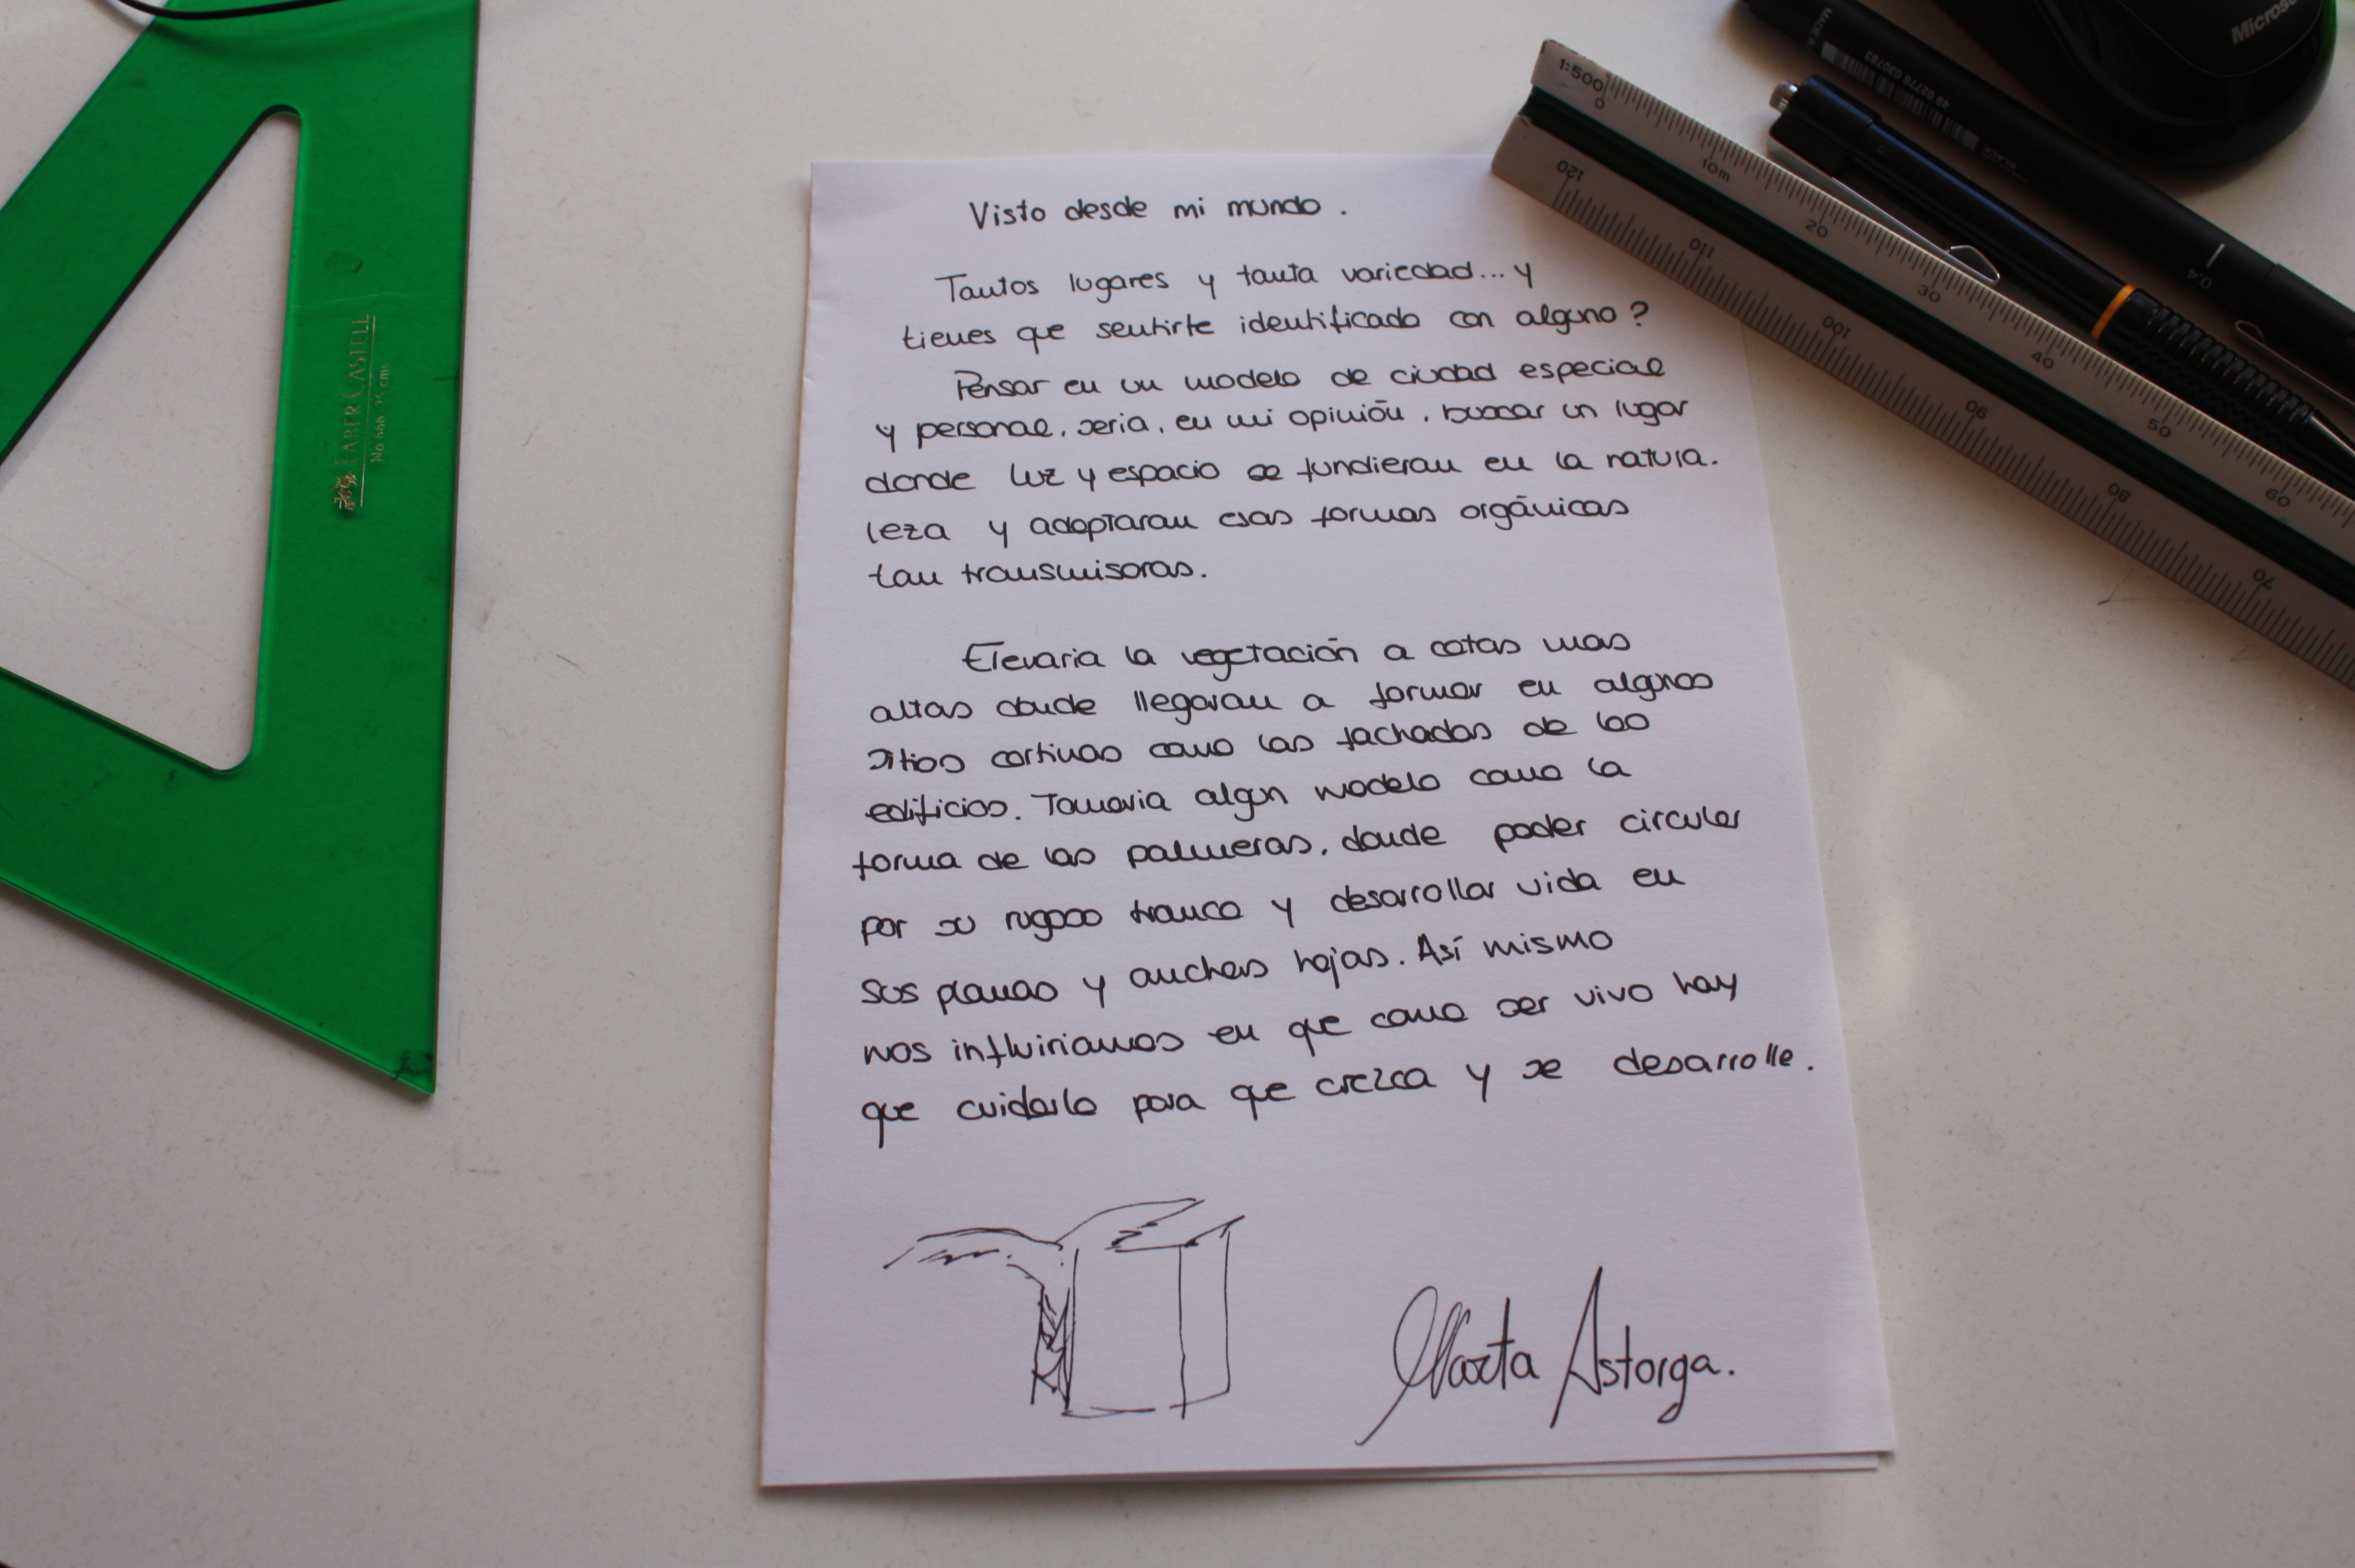 Visto desde mi mundo.
Tantos lugares y tanta variedad... y
tienes que sentirte identificado con alguno?
Pensar en un modelo de ciudad especial
y personal, seria, en mi opinión, buscar un lugar
donde luz y espacio se fundieran en la natura-
leza y adoptaran esas formas orgánicas
tan transmisoras.
Elevaria la vegetación a cotas mas
altas donde llegaran a formar en algunos
sitios cortinas como las fachadas de los
edificios. Tomaria algun modelo como la
forma de las palmeras, donde poder circular
por su rugoso tronco y desarrollar vida en
sus planas y anchas hojas. Así mismo
nos influiriamos en que como ser vivo hay
que cuidarlo para que crezca y se desarrolle.
Marta Astorga.
FABER-CASTELL
No 666 25 cms
1:500
0 10m 20 30 40 50 60
120 110 100 90 80 70
MADE
49 02778 030763
BLACK
0.4
Micros